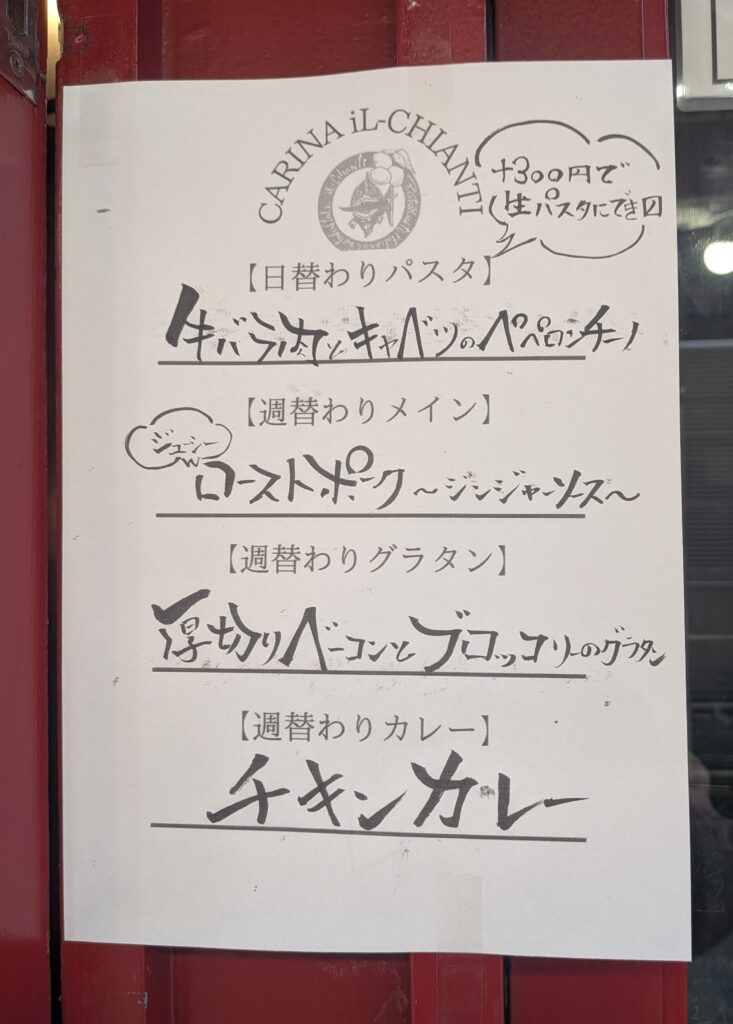 CARINA iL-CHIANTI
+300円で
生パスタにでき〼
【日替わりパスタ】
牛バラ肉とキャベツのペペロンチーノ
【週替わりメイン】
ジューシー
ローストポーク~ジンジャーソース~
【週替わりグラタン】
厚切りベーコンとブロッコリーのグラタン
【週替わりカレー】
チキンカレー